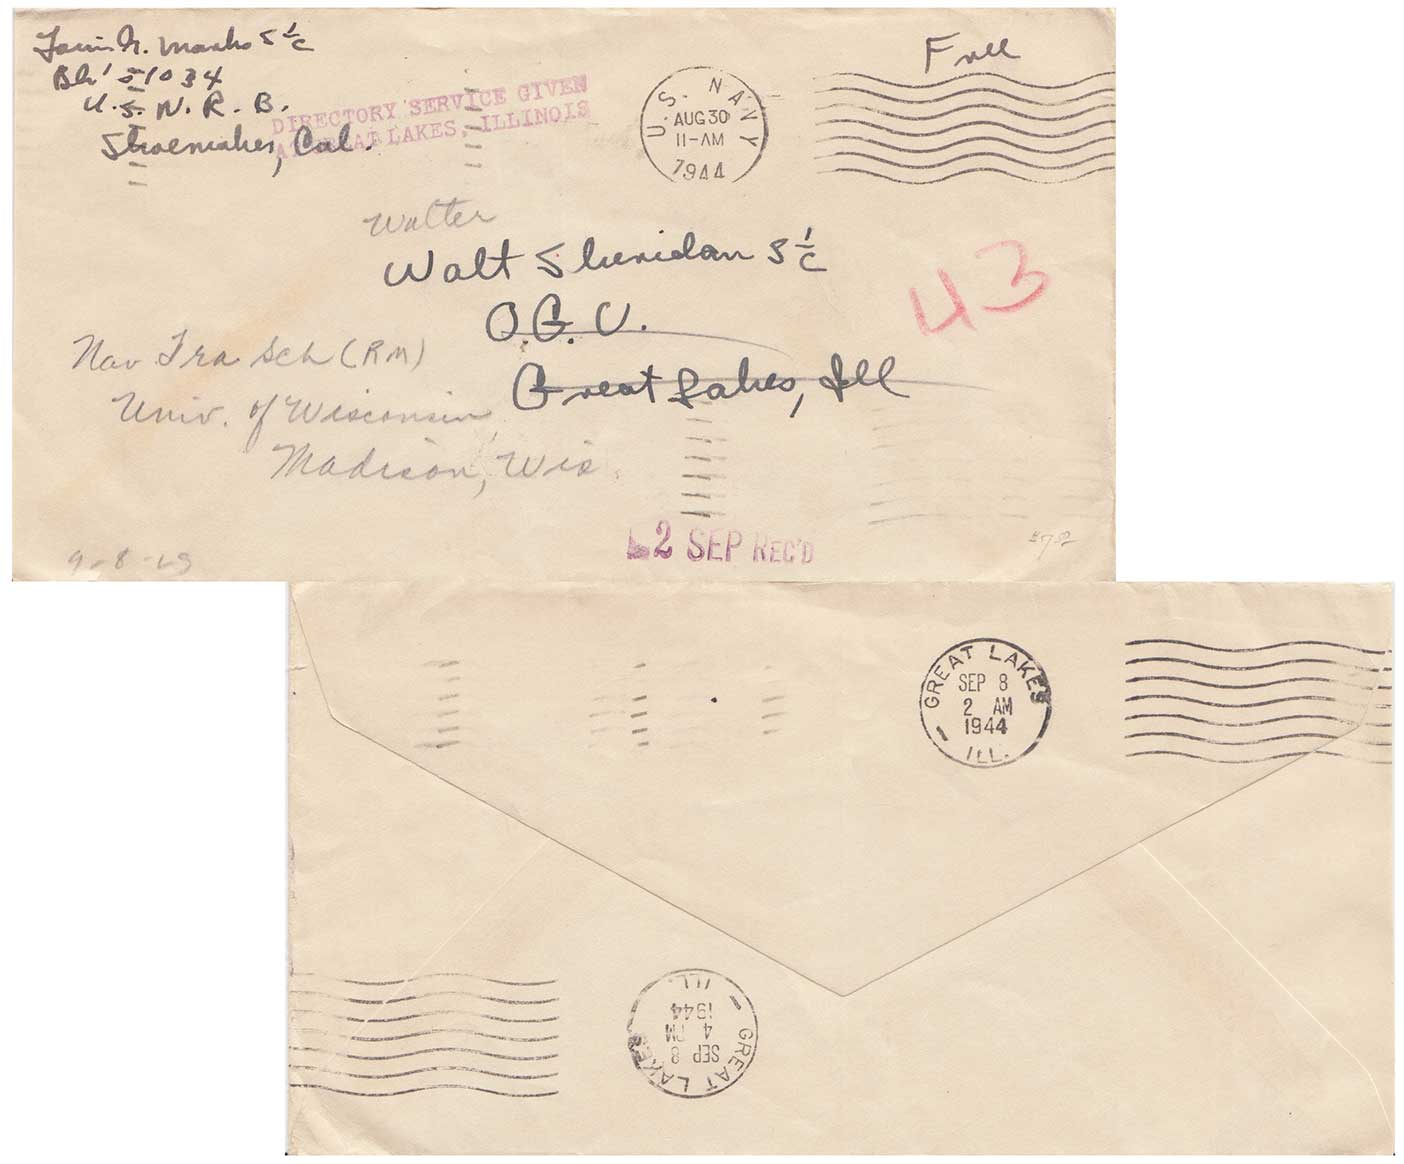 Louis N. Marks S 1/C
U.S.N.R.B.
Shoemaker, Cal.
DIRECTORY SERVICE GIVEN
AT GREAT LAKES, ILLINOIS
U.S. NAVY
AUG 30
11-AM
1944
Free
Walter
Walt Sheridan S 1/C
O.G.U.
Great Lakes, Ill
43
Nav Tra Sch (RM)
Univ. of Wisconsin
Madison, Wis.
2 SEP REC'D
GREAT LAKES
SEP 8
2 AM
1944
ILL.
GREAT LAKES
SEP 8
4 PM
1944
ILL.